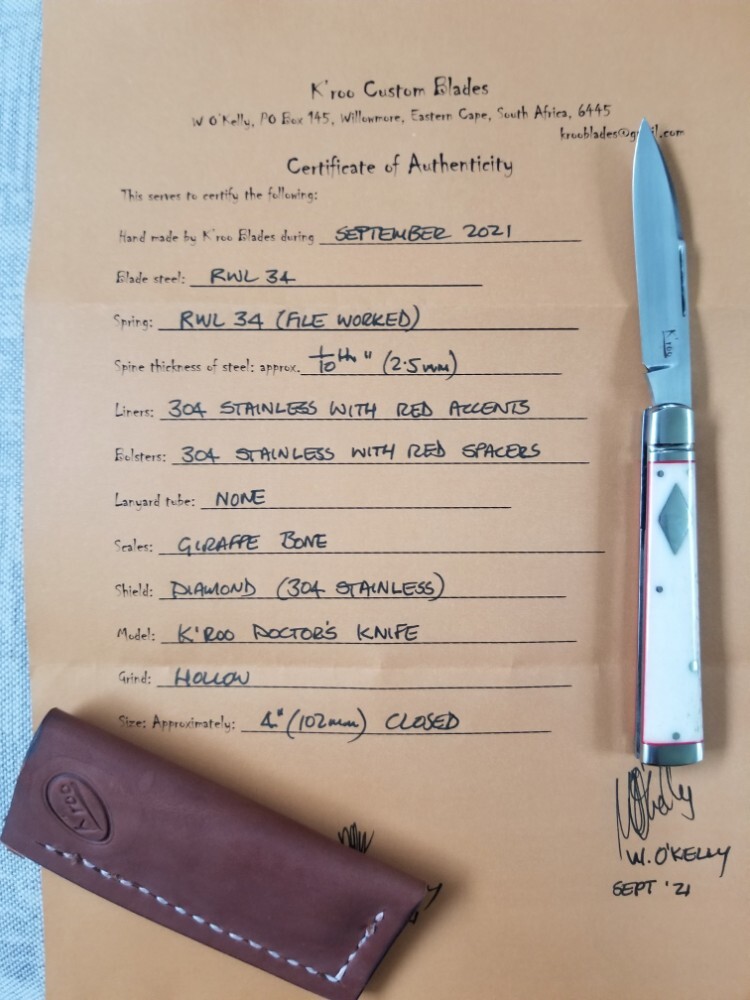 K'roo Custom Blades
W O'Kelly, PO Box 145, Willowmore, Eastern Cape, South Africa, 6445
krooblades@g il.com
Certificate of Authenticity
This serves to certify the following:
Hand made by K'roo Blades during SEPTEMBER 2021
Blade steel: RWL 34
Spring: RWL 34 (FILE WORKED)
Spine thickness of steel: approx. 1/10th " (2.5mm)
Liners: 304 STAINLESS WITH RED ACCENTS
Bolsters: 304 STAINLESS WITH RED SPACERS
Lanyard tube: NONE
Scales: GIRAFFE BONE
Shield: DIAMOND (304 STAINLESS)
Model: K'ROO DOCTOR'S KNIFE
Grind: HOLLOW
Size: Approximately: 4" (102mm) CLOSED
K'roo
K'roo
W O'Kelly
W. O'KELLY
SEPT '21